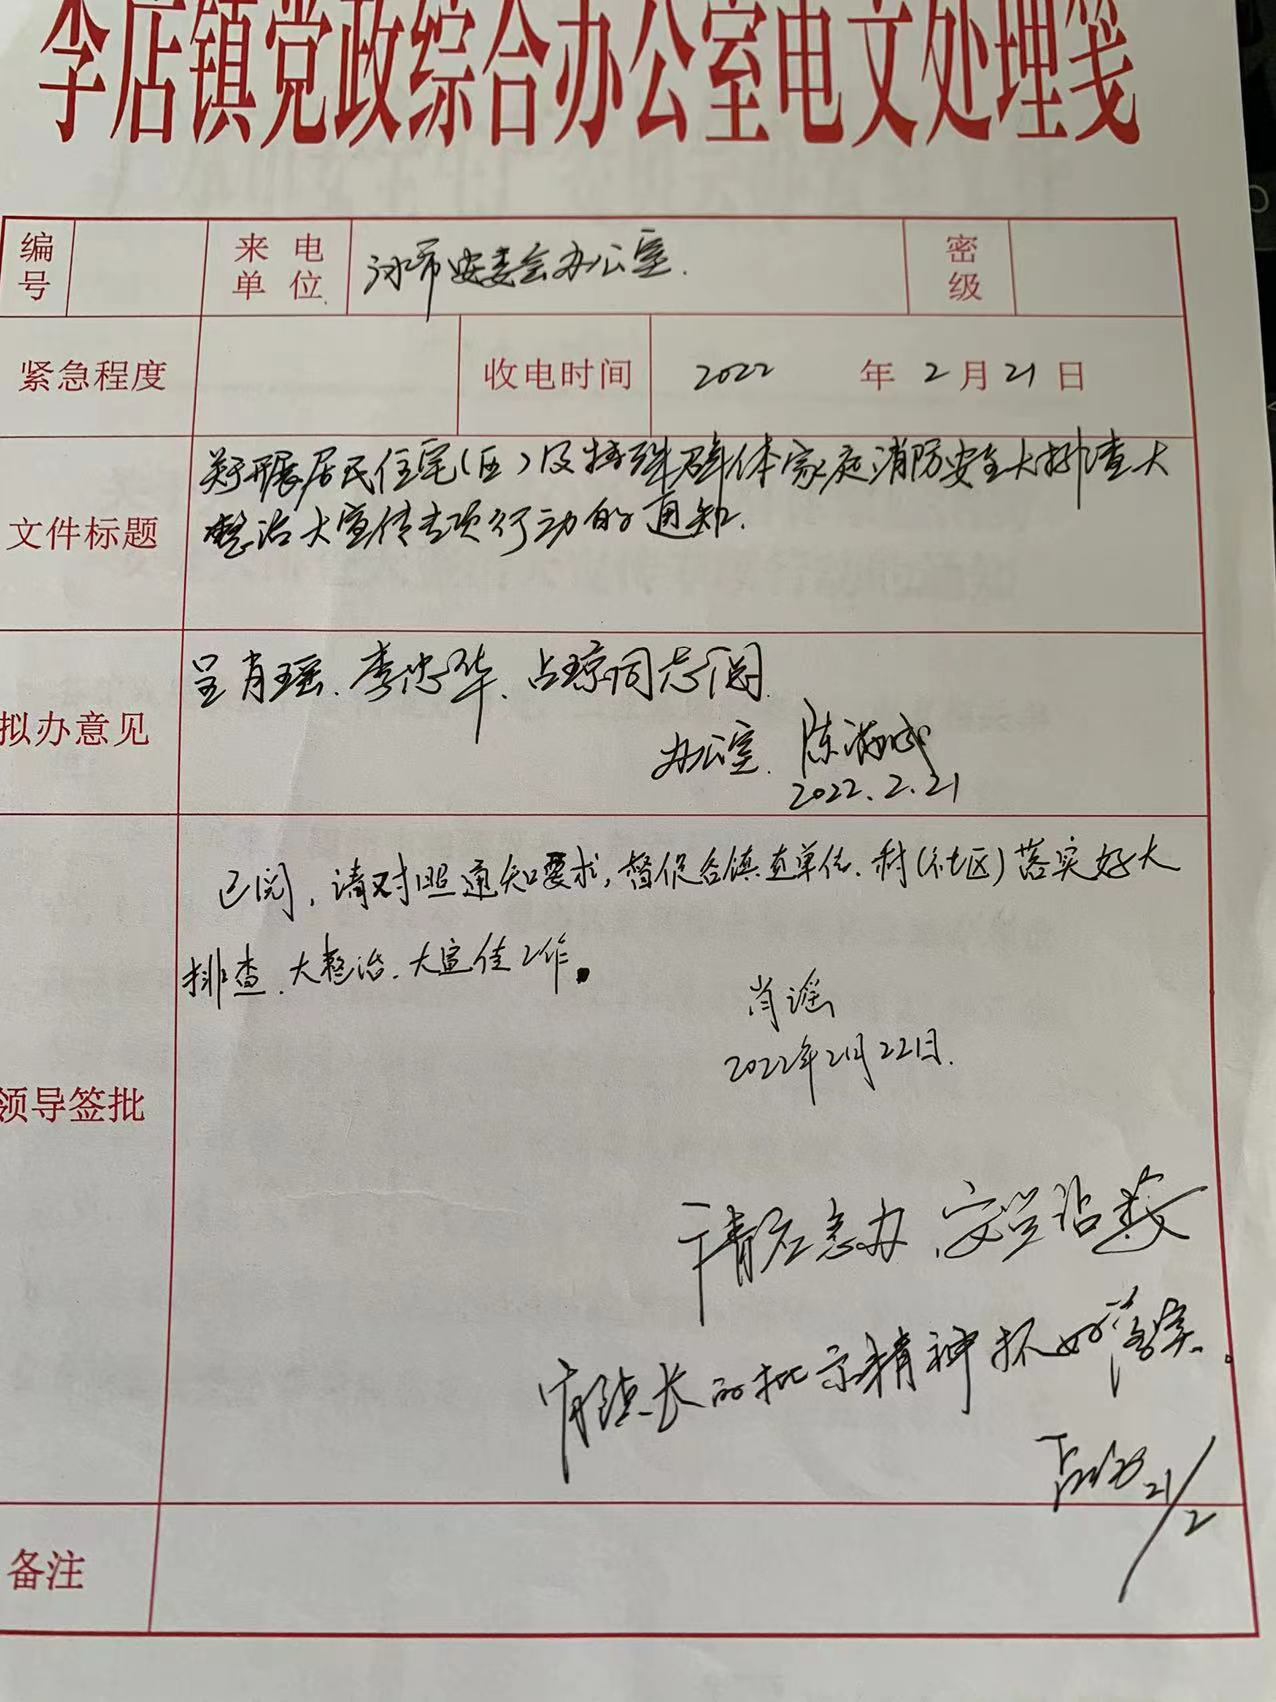 李店镇党政综合办公室电文处理笺
编号
来电单位
市安委会办公室.
密级
紧急程度
收电时间
2022年2月21日
文件标题
关于开展居民住宅(区)及特殊群体家庭消防安全大排查大
整治大宣传专项行动的通知.
拟办意见
呈肖瑶、李忠华、占琼同志阅
办公室.陈
2022.2.21
领导签批
已阅,请对照通知要求,督促各镇直单位、村(社区)落实好大
排查、大整治、大宣传工作。
肖谣
2022年2月22日.
请应急办、安
肖镇长的批示精神抓好落实。
21/2
备注